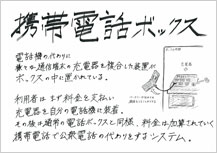 携帯電話ボックス
電話機の代わりに
様々な通信端末の充電器を複合した装置が
ボックスの中に置かれている。
利用者はまず料金を支払い
充電器を自分の電話機に装着。
その後は通常の電話ボックスと同様、料金は加算されていく
携帯電話で公衆電話の代わりをするシステム。